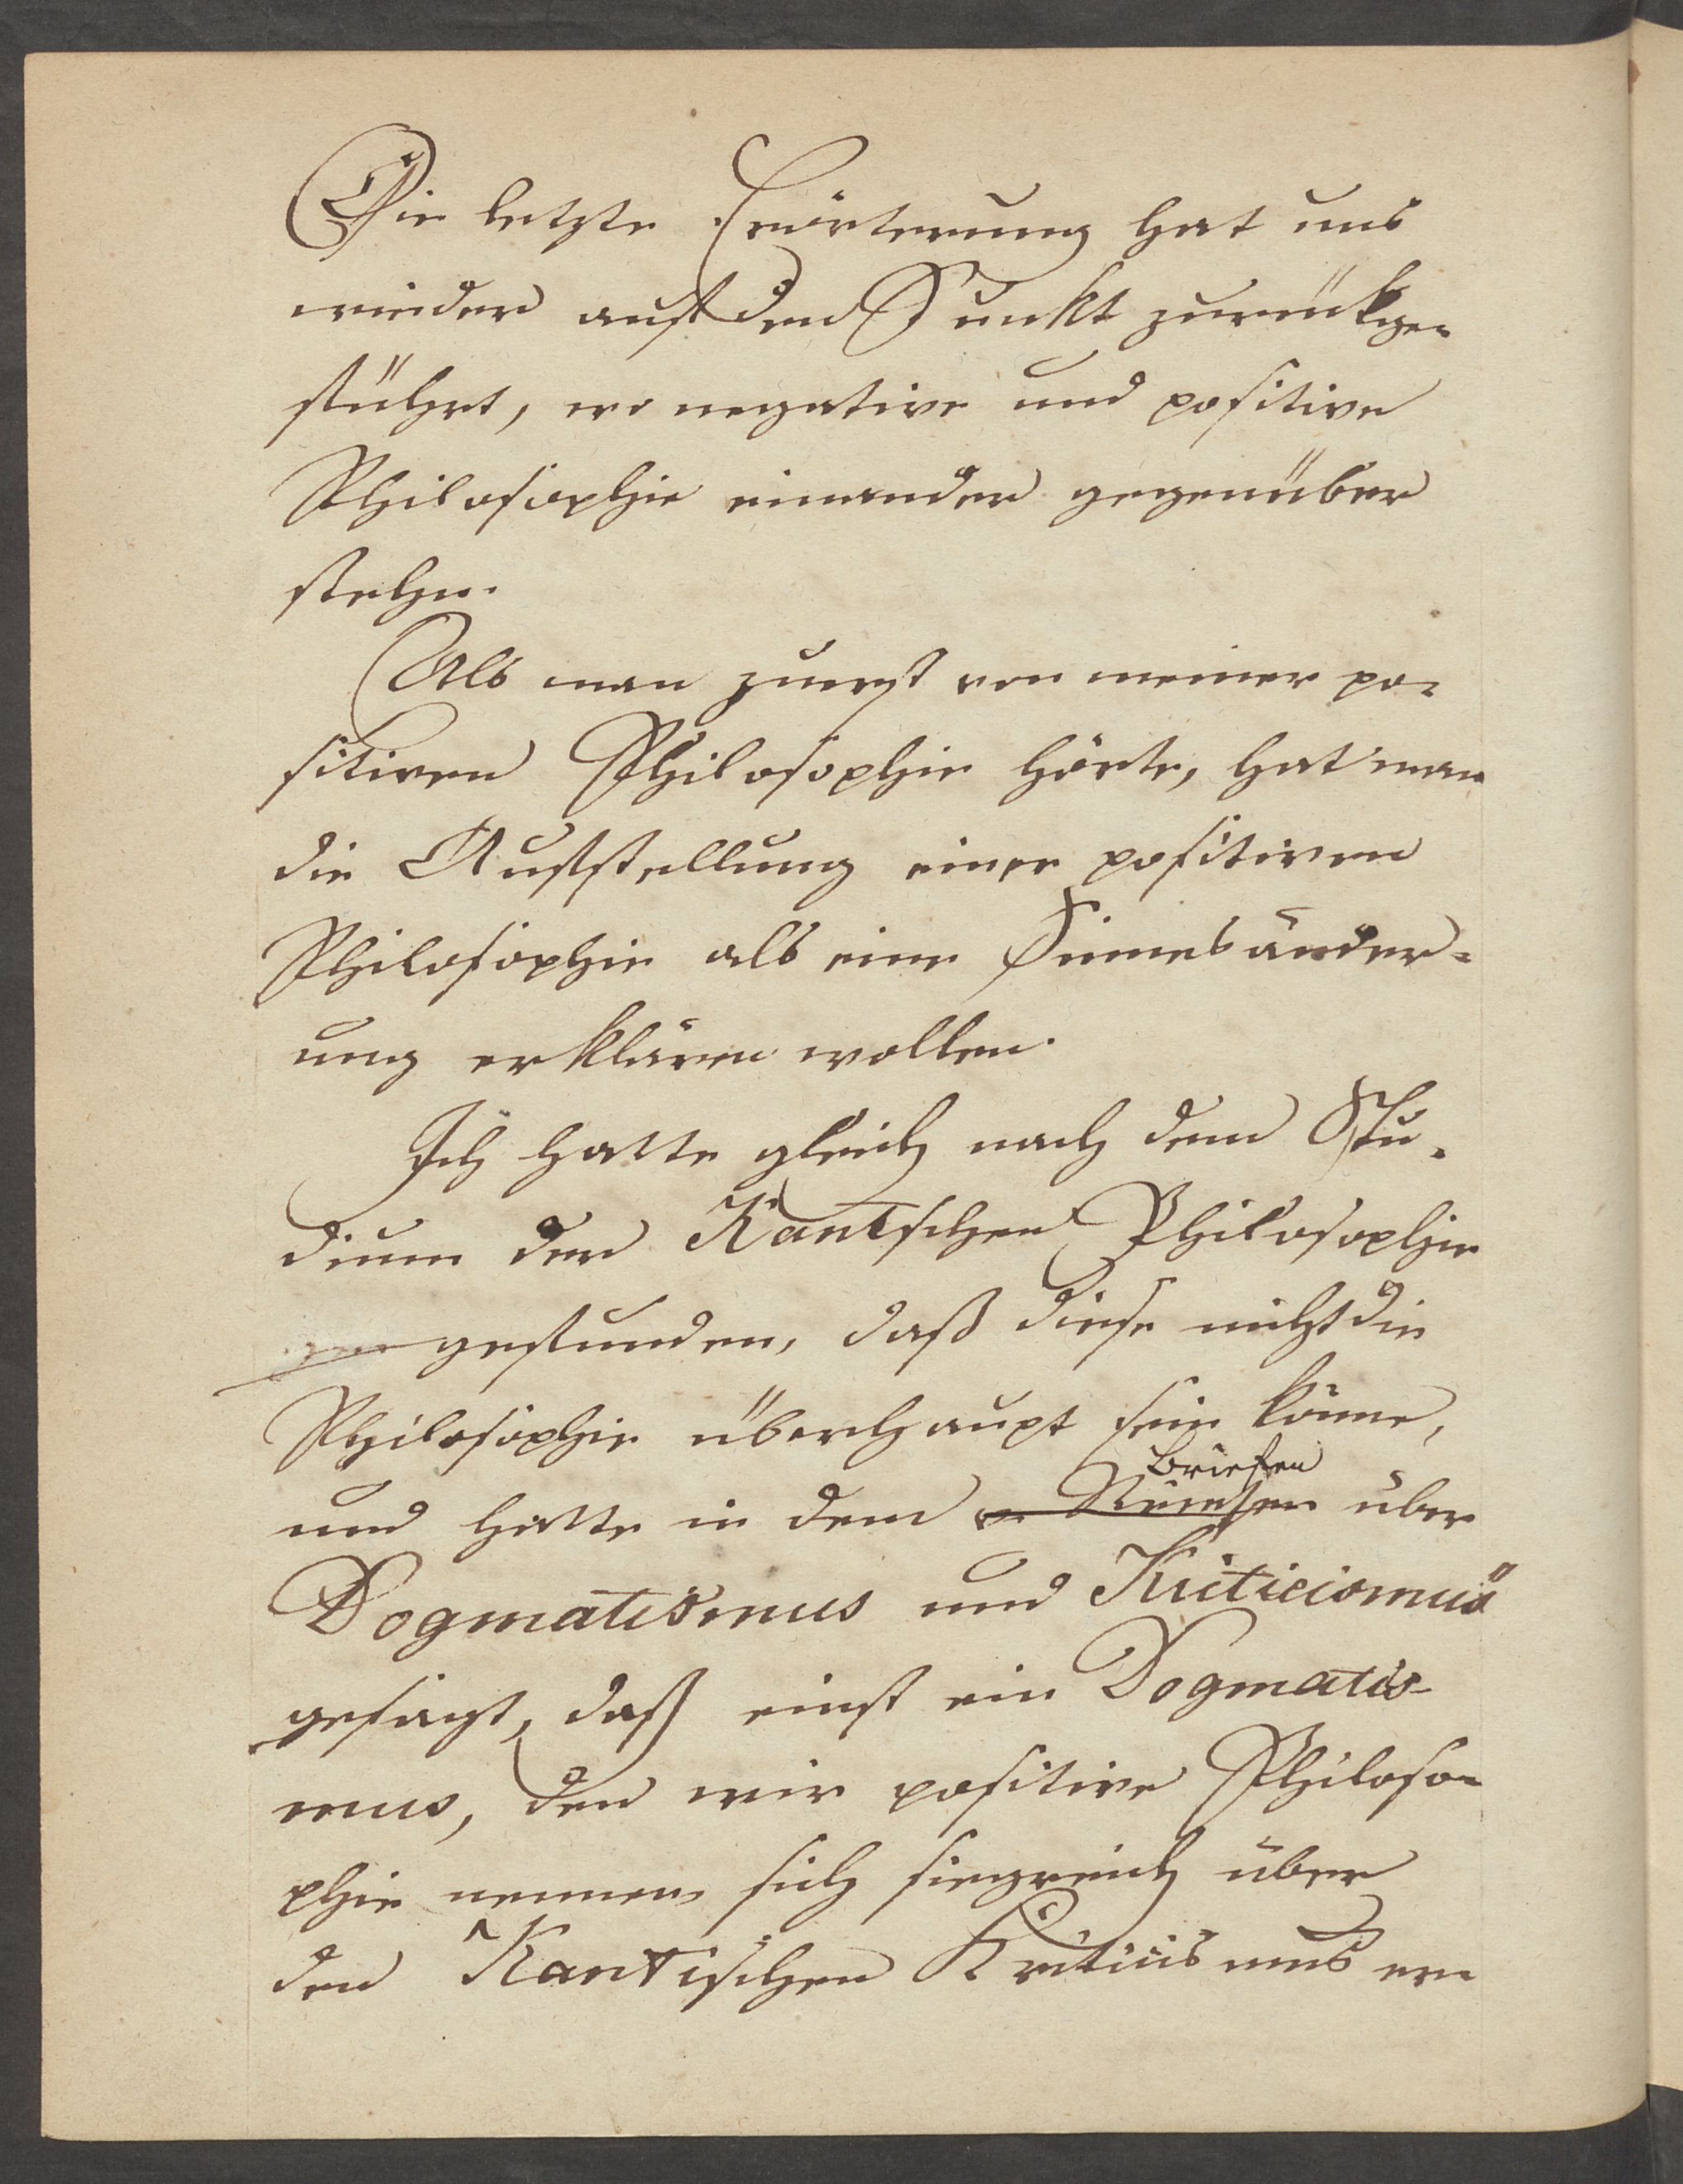 Die letzte Erörterung hat uns
wieder auf den Punkt zurückge-
führt, wo negative und positive
Philosophie einander gegenüber
stehn.
Als man zuerst von meiner po-
sitiven Philosophie hörte, hat man
die Aufstellung einer positiven
Philosophie als eine Sinnesänder-
ung erklären wollen.
Ich hatte gleich nach dem Stu-
dium der Kantschen Philosophie
gefunden, daß diese nicht die
Philosophie überhaupt sein könne,
Briefen
und hatte in den über
Dogmatismus und Kriticismus
gesagt, daß einst ein Dogmatis-
mus, den wir positive Philoso-
phie nennen sich siegreich über
den Kantischen Kriticismus er-